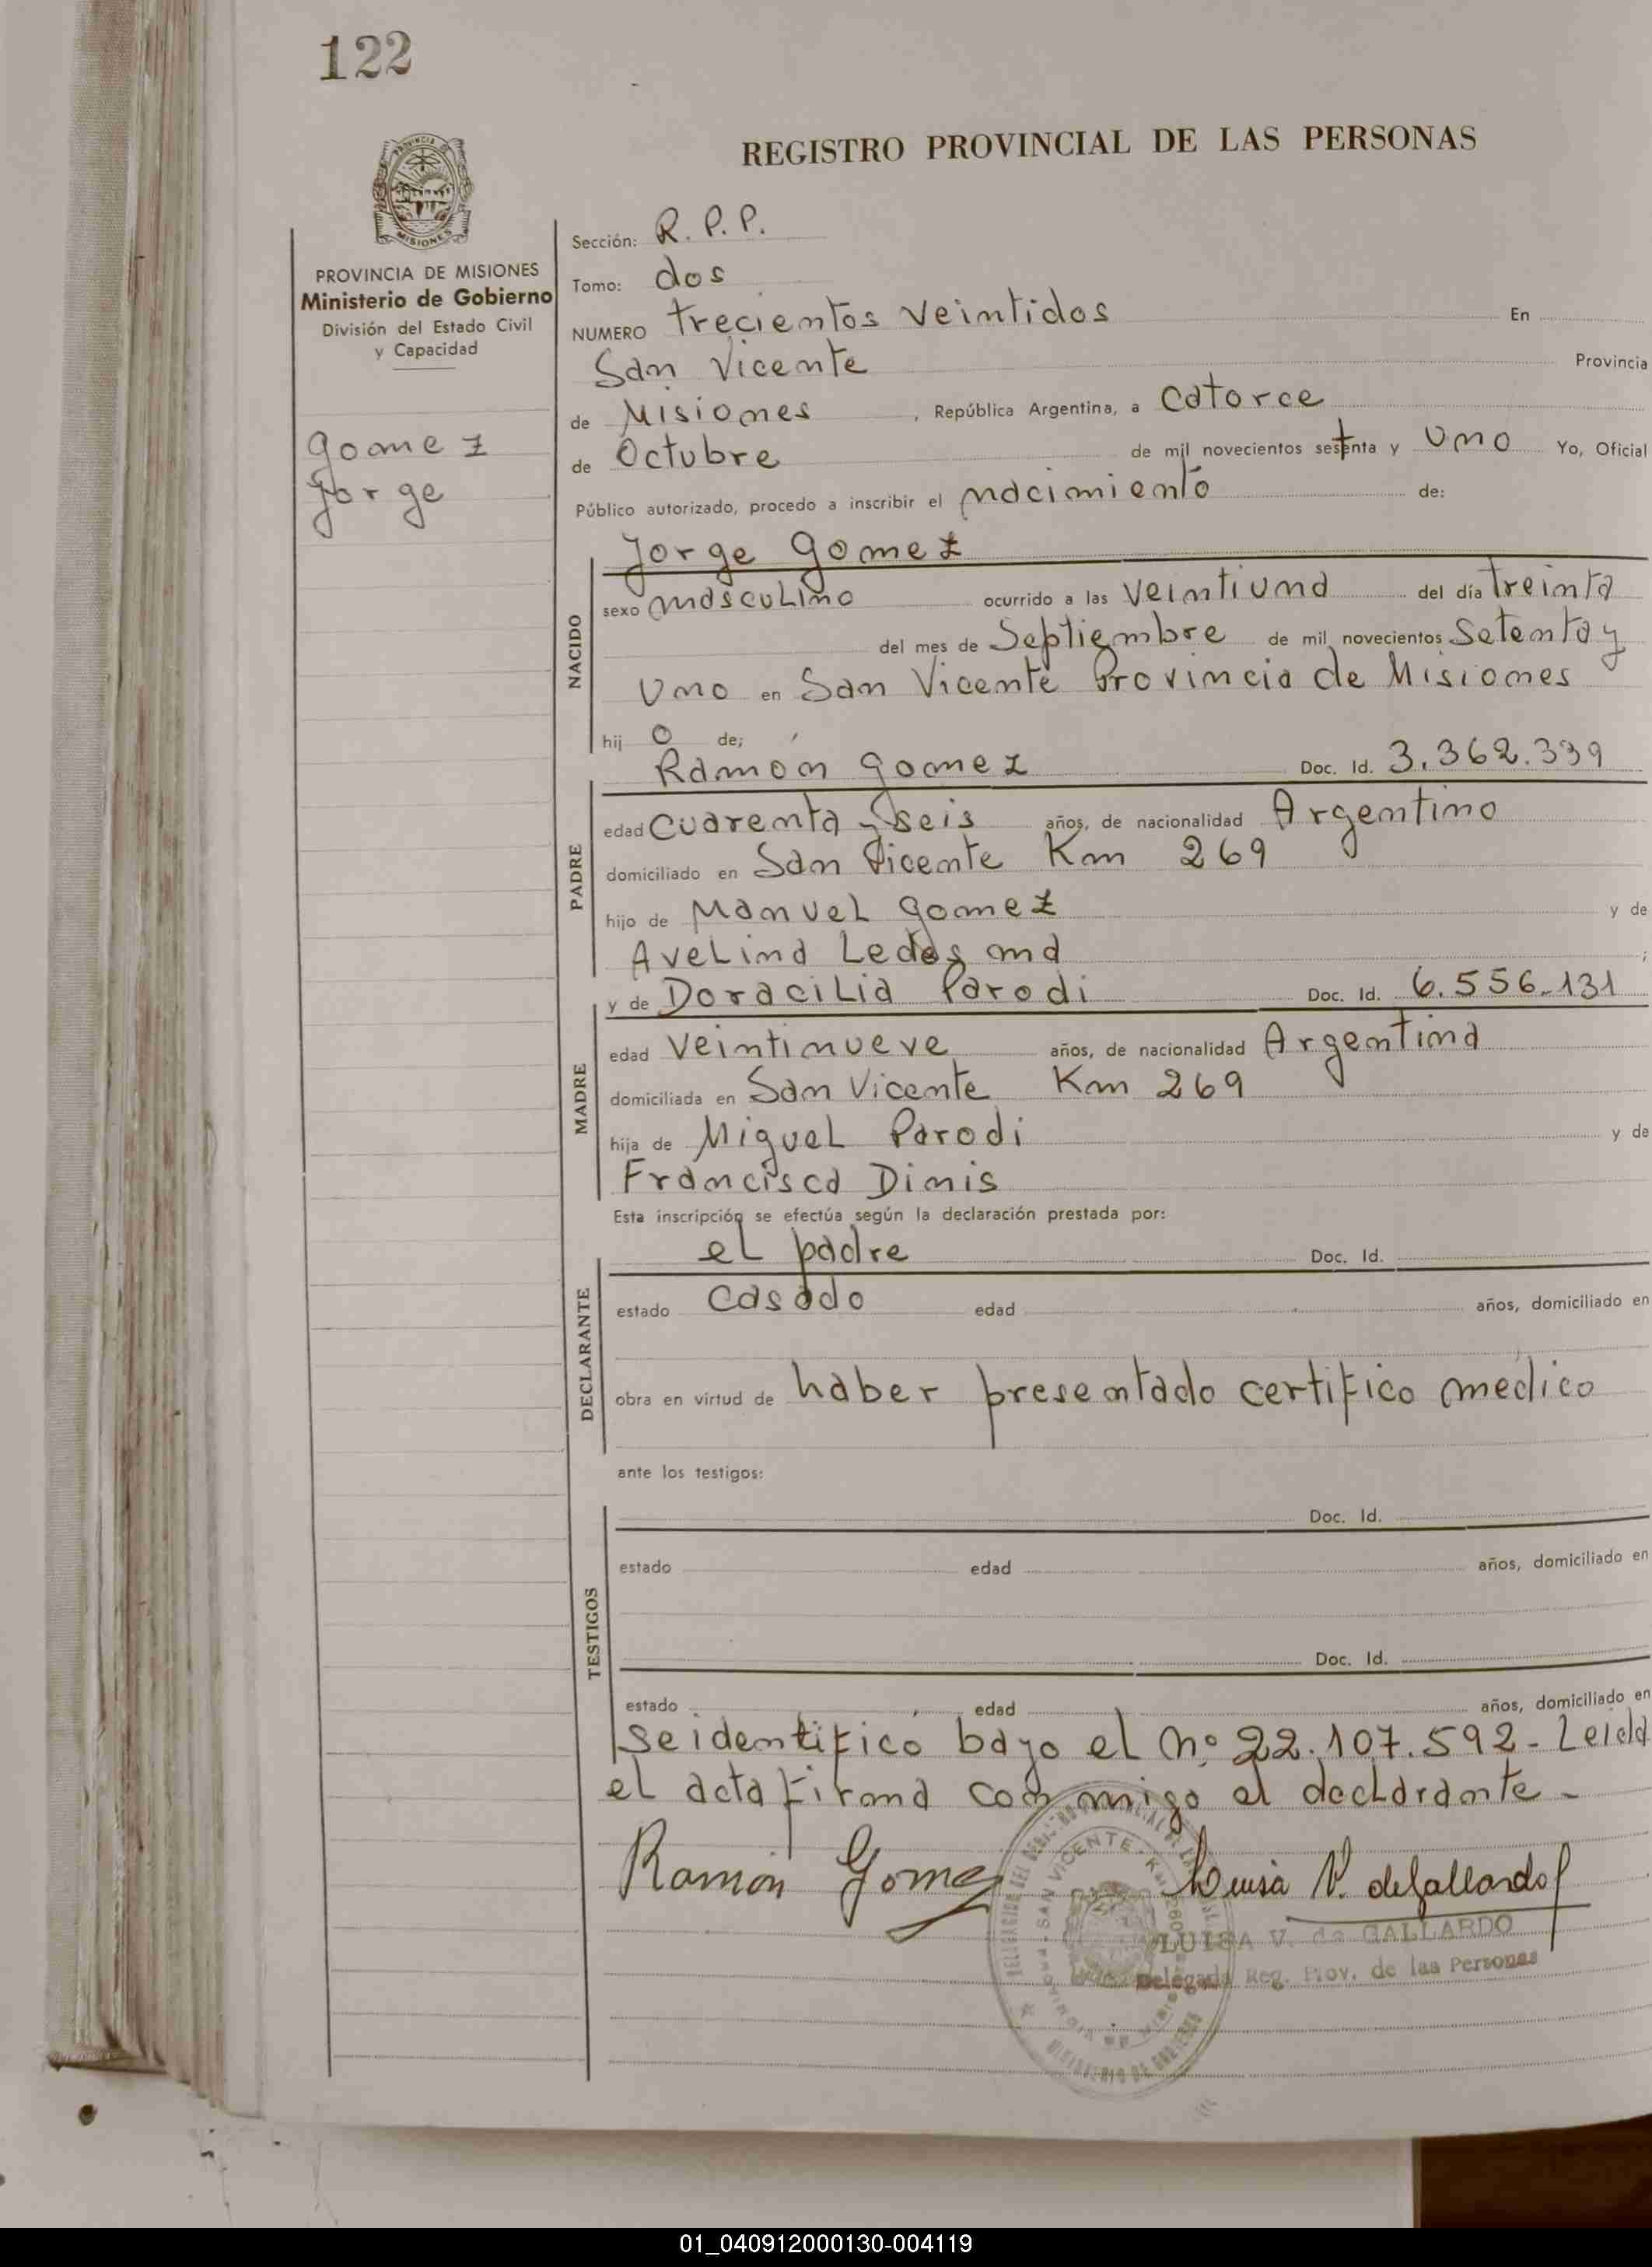 122
REGISTRO PROVINCIAL DE LAS PERSONAS
MISIONES
PROVINCIA DE MISIONES
Ministerio de Gobierno
División del Estado Civil
y Capacidad
Gomez
Jorge
Sección: R. P. P.
Tomo: dos
NUMERO trecientos veintidos En
San Vicente Provincia
de Misiones, República Argentina, a catorce
de Octubre de mil novecientos setenta y uno Yo, Oficial
Público autorizado, procedo a inscribir el nacimiento de:
NACIDO
Jorge Gomez
sexo masculino ocurrido a las veintiuna del día treinta
del mes de Septiembre de mil novecientos setenta y
uno en San Vicente Provincia de Misiones
hij o de;
PADRE
Ramón Gomez Doc. Id. 3.362.339
edad cuarenta y seis años, de nacionalidad Argentino
domiciliado en San Vicente Km 269
hijo de Manuel Gomez y de
Avelina Ledesma ;
MADRE
y de Doracilia Parodi Doc. Id. 6.556.131
edad veintinueve años, de nacionalidad Argentina
domiciliada en San Vicente Km 269
hija de Miguel Parodi y de
Francisca Dinis
Esta inscripción se efectúa según la declaración prestada por:
DECLARANTE
el padre Doc. Id.
estado casado edad años, domiciliado en
obra en virtud de haber presentado certifico medico
ante los testigos:
TESTIGOS
Doc. Id.
estado edad años, domiciliado en
Doc. Id.
estado edad años, domiciliado en
se identificó bajo el nº 22.107.592 - Leida
el acta firma conmigo el declarante -
Ramón Gomez Luisa V. de Gallardo
LUISA V. de GALLARDO
Delegada Reg. Prov. de las Personas
01_040912000130-004119